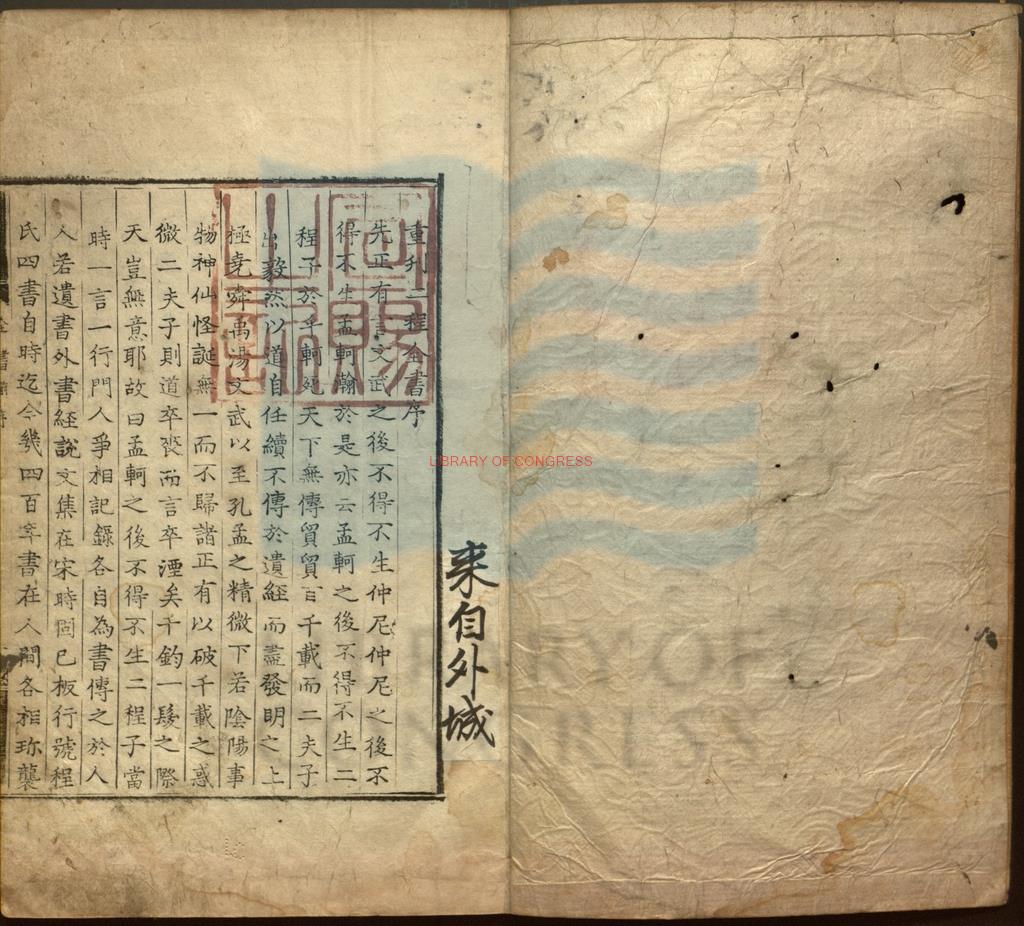 来自外城
重刊二程全書序
先正有言文武之後不得不生仲尼仲尼之後不
得不生孟軻瀚於是亦云孟軻之後不得不生二
程子於乎軻死天下無傳貿貿百千載而二夫子
出毅然以道自任續不傳於遺經而盡發明之上
極堯舜禹湯文武以至孔孟之精微下若陰陽事
物神仙怪誕無一而不歸諸正有以破千載之惑
微二夫子則道卒喪而言卒湮矣千鈞一髮之際
天豈無意耶故曰孟軻之後不得不生二程子當
時一言一行門人爭相記錄各自為書傳之於人
人若遺書外書經說文集在宋時固已板行號程
氏四書自時迄今幾四百年書在人間各相珎襲
LIBRARY OF CONGRESS